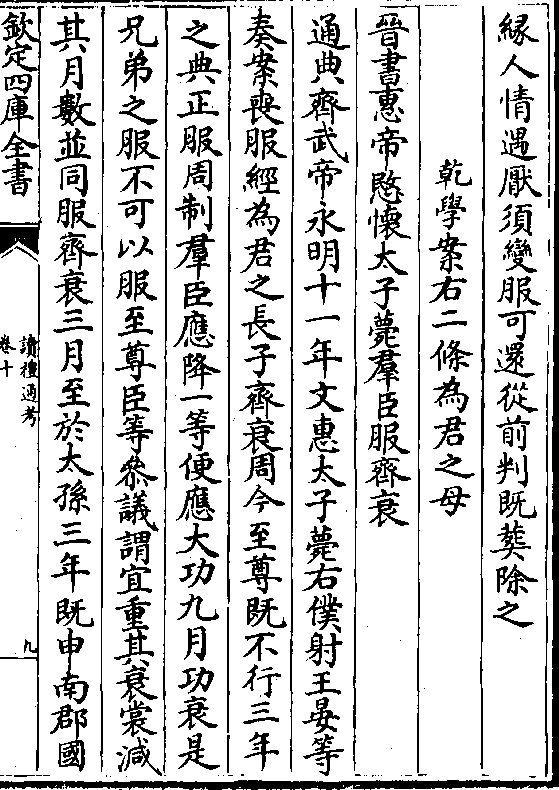 緣人情遇厭須變服可還從前判既葬除之
乾學案右二條為君之母
晉書惠帝愍懷太子薨羣臣服齊衰
通典齊武帝永明十一年文惠太子薨右僕射王晏等
奏案喪服經為君之長子齊衰周今至尊既不行三年
之典正服周制羣臣應降一等便應大功九月功衰是
兄弟之服不可以服至尊臣等叅議謂宜重其衰裳減
其月數並同服齊衰三月至於太孫三年既申南郡國
欽定四庫全書
讀禮通考
卷十
九